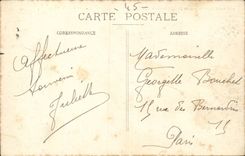 45-
CARTE POSTALE
CORRESPONDANCE
ADRESSE
Affectueux
Souvenir
Juliette
Mademoiselle
Georgette Bouchet
15 rue des Bernardins
Paris